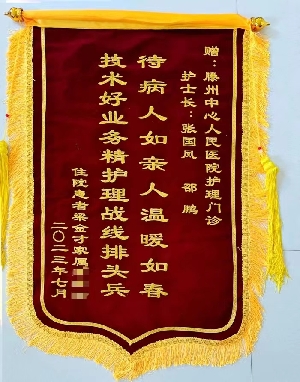 赠：滕州中心人民医院护理门诊
护士长：张国凤 邵鹏
待病人如亲人温暖如春
技术好业务精护理战线排头兵
住院患者梁金才家属
二〇二三年七月